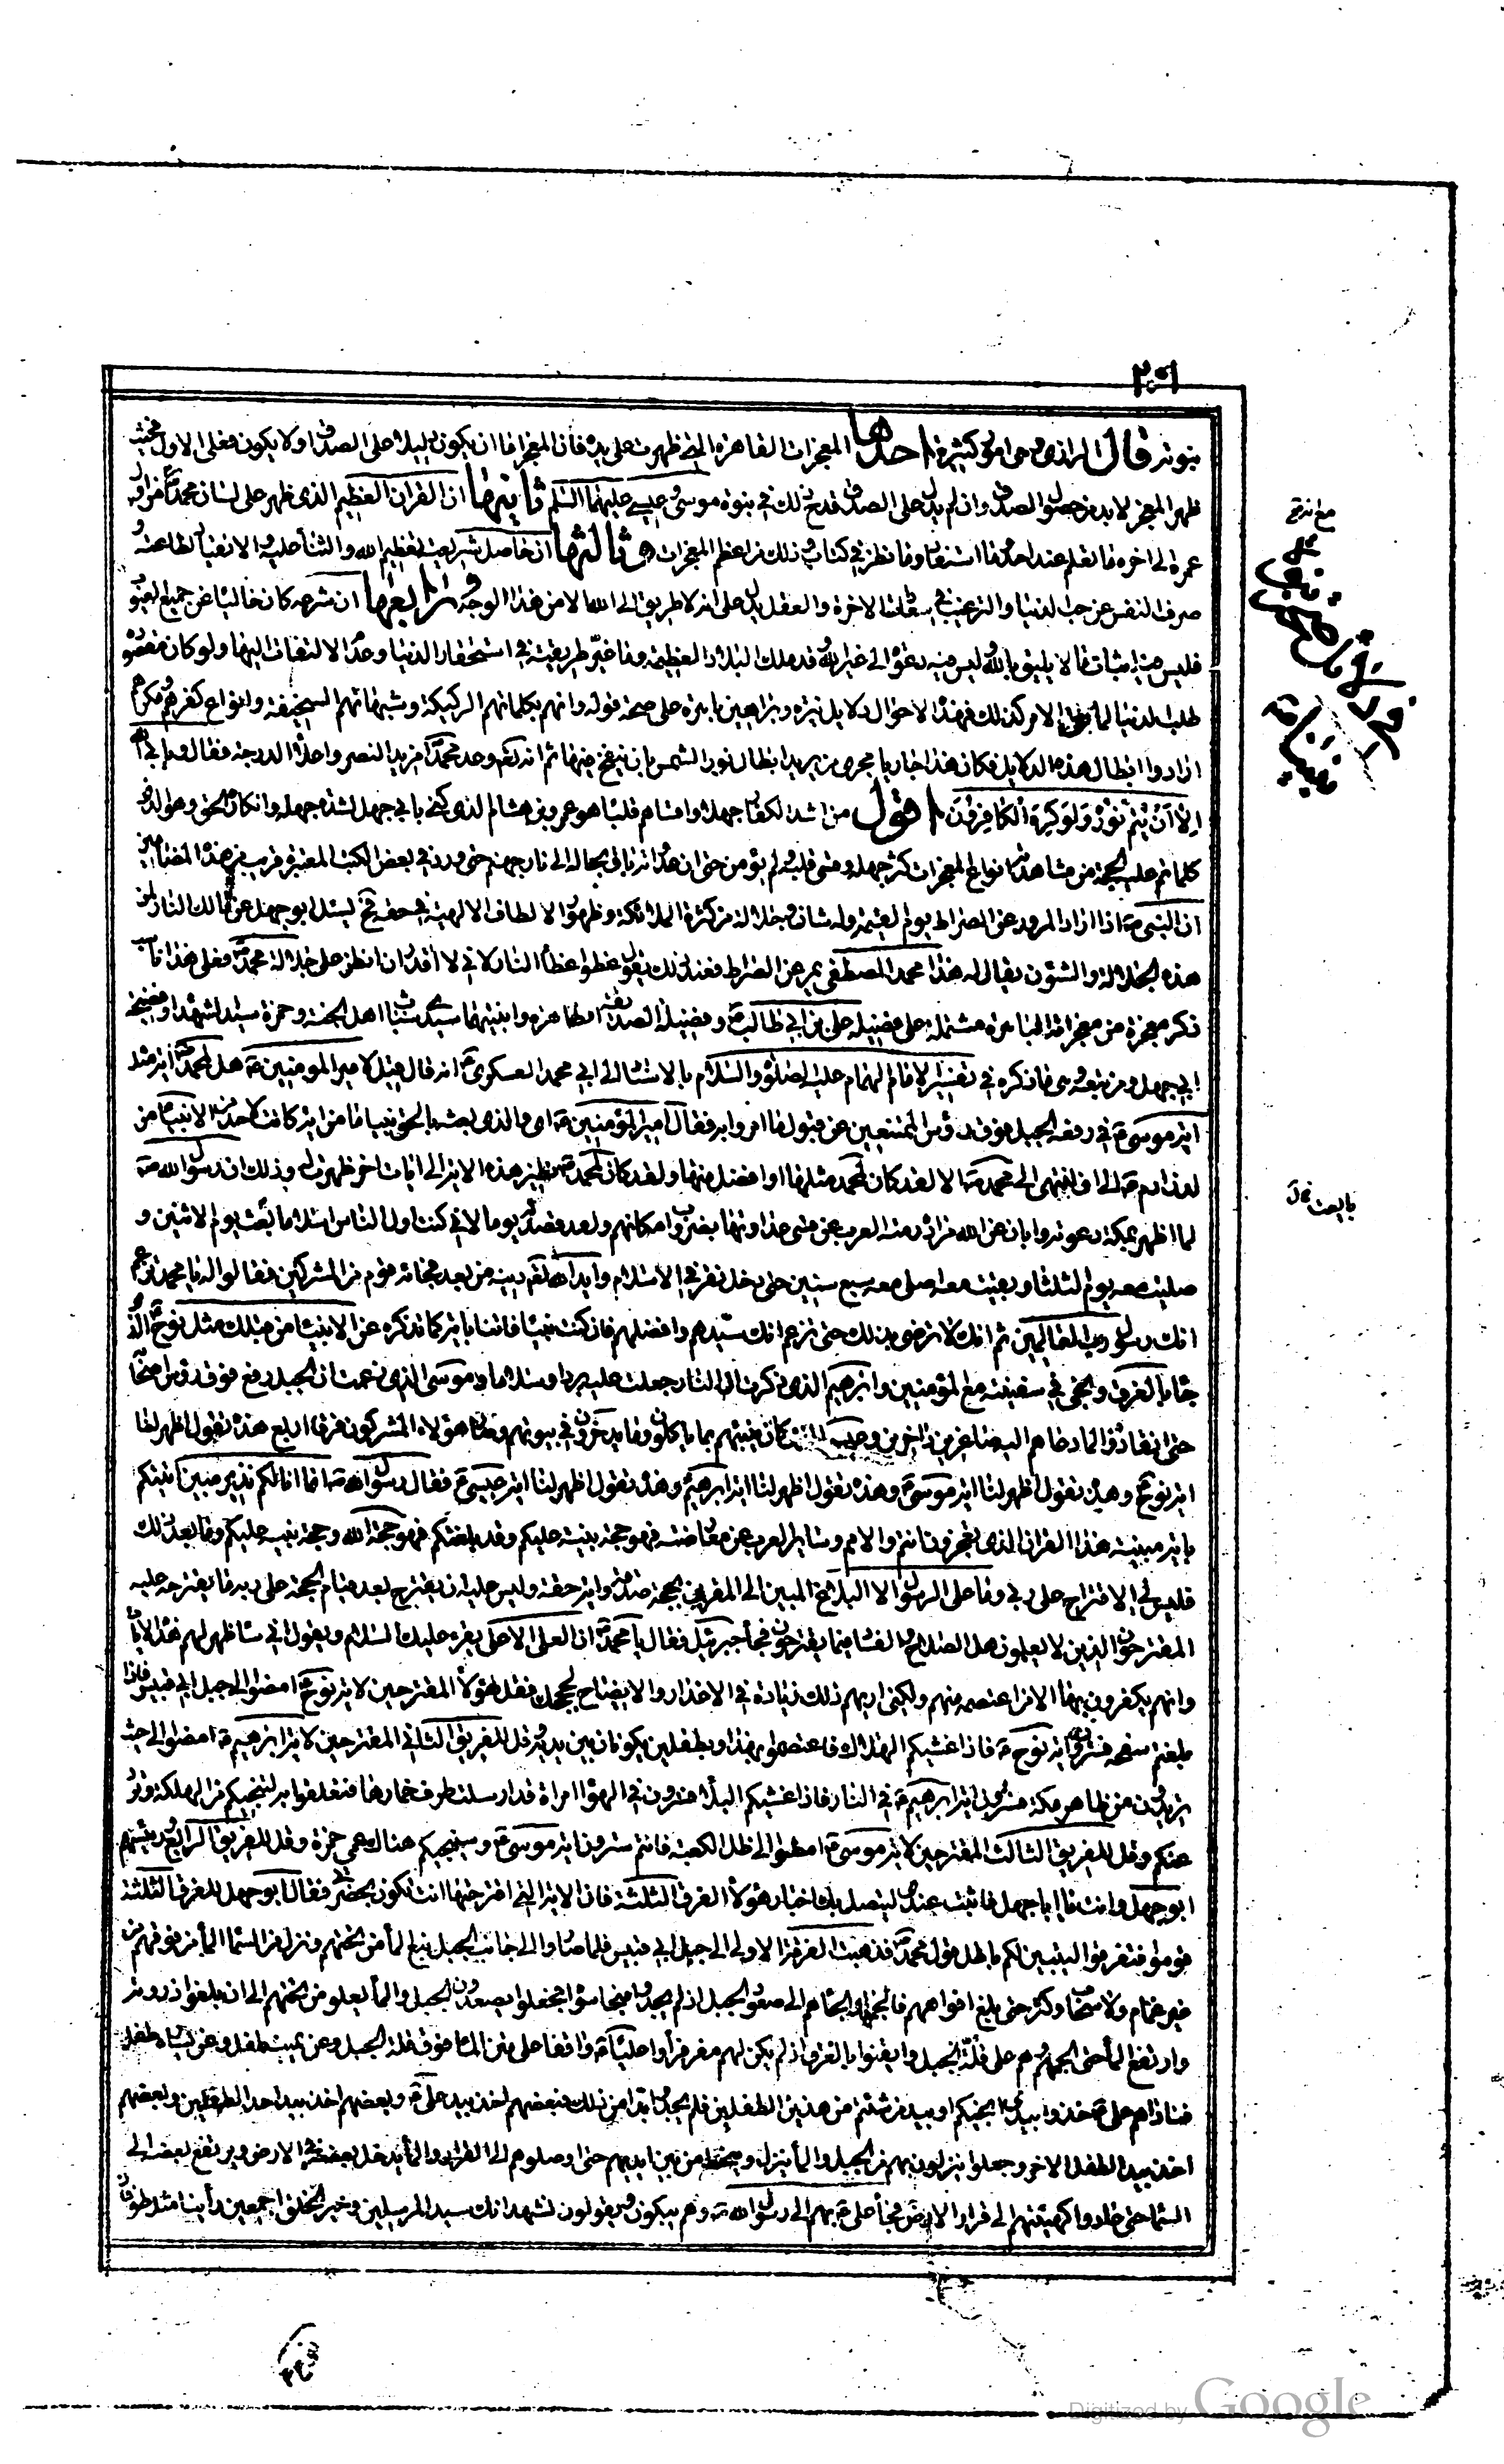 ٢٠١
نبوته قال الرازي وهي امور كثيرة احدها المعجزات القاهرة التي ظهرت على يده فان المعجز اما ان يكون دليلا على الصدق او لا يكون فعلى الاول فحيث
ظهر المعجز لا بد من حصول الصدق وان لم يدل على الصدق قدح ذلك في نبوة موسى وعيسى عليهما السلم وثانيها ان القران العظيم الذي ظهر على لسان محمد من اول
عمره الى اخره ما تعلم عند احد وما استفاد وما نظر في كتاب وذلك من اعظم المعجزات وثالثها ان حاصل شريعته تعظيم الله والثناء عليه والانقياد لطاعته و
صرف النفس عن حب الدنيا والترغيب في سعادات الاخرة والعقل يدل على انه لا طريق الى الله الا من هذا الوجه ورابعها ان شرعه كان خاليا عن جميع العيوب
فليس فيه اثبات ما لا يليق بالله وليس فيه دعوة الى غير الله وقد ملك البلاد العظيمة وما غير طريقته في استحقار الدنيا وعدم الالتفات اليها ولو كان مقصوده
طلب الدنيا لما بقي الامر كذلك فهذه الاحوال دلايل نيرة وبراهين باهرة على صحة قوله وانهم بكلماتهم الركيكة وشبهاتهم السخيفة وانواع كفرهم ومكرهم
ارادوا ابطال هذه الدلايل فكان هذا جاريا مجرى من يريد ابطال نور الشمس بان ينفخ فيها ثم انه تعم وعد محمدا مزيد النصر واعلاء الدرجة فقال ويابى الله
الا ان يتم نوره ولو كره الكافرون اقول من اشد الكفار جهلا واقساهم قلبا هو عمرو بن هشام الذي كني بابي جهل لشدة جهله وانكاره للحق وهو الذي
كلما تم عليه الحجة من مشاهدة انواع المعجزات كثر جهله وقسى قلبه ولم يؤمن حتى ان هذا انه باق بحاله الى نار جهنم حتى ورد في بعض الكتب المعتبرة قريب من هذا المضامين
ان النبي ص اذا اراد المرور عن الصراط يوم القيمة وله شان وجلالة من كثرة الملائكة وظهور الالطاف الالهية في حقه فيسئل ابو جهل عن مالك النار لمن
هذه الجلالة والشؤن يقال له هذا محمد المصطفى يمر عن الصراط فعند ذلك يقول غطوا غطاء النار لاني لا اقدر ان انظر على جلالة محمد فعلى هذا نات
ذكر معجزة من معجزاته الباهرة مشتملة على فضيلة علي بن ابي طالب ع وفضيلة الصديقة الطاهرة وابنيهما سيدي شباب اهل الجنة وحمزة سيد الشهداء وفضيحة
ابي جهل ومن تبعه وهي ما ذكره في تفسير الامام الهمام عليه الصلوة والسلام بالاسناد الى ابي محمد العسكري ع انه قال قيل لامير المؤمنين ع هل لمحمد اية مثل
اية موسى ع في رفعه الجبل فوق رؤس الممتنعين عن قبول ما امروا به فقال امير المؤمنين ع اي والذي بعثه بالحق نبيا ما من اية كانت لاحد من الانبياء من
لدن ادم ع الى ان انتهى الى محمد ص الا وقد كان لمحمد مثلها او افضل منها ولقد كان لمحمد ص نظير هذه الاية الى ايات اخر ظهرت له وذلك ان رسول الله ص
لما اظهر بمكة دعوته وابان عن الله مراده رمته العرب عن قسي عداوتها بضروب امكانهم ولقد قصدته يوما لاني كنت اول الناس اسلاما بعث يوم الاثنين و
صليت معه يوم الثلثاء وبقيت معه اصلي معه سبع سنين حتى دخل نفر في الاسلام وايد الله تعم دينه من بعد فجائه قوم من المشركين فقالوا له يا محمد تزعم
انك رسول رب العالمين ثم انك لا ترضى بذلك حتى تزعم انك سيدهم وافضلهم فان كنت نبيا فاتنا باية كما تذكره عن الانبياء من قبلك مثل نوح الذي
جاء بالغرق ونجى في سفينته مع المؤمنين وابرهيم الذي ذكرت ان النار جعلت عليه بردا وسلاما وموسى الذي زعمت ان الجبل رفع فوق رؤس اصحابه
حتى انقادوا لما دعاهم اليه صاغرين داخرين وعيسى الذي كان ينبئهم بما ياكلون وما يدخرون في بيوتهم وصار هؤلاء المشركون فرقا اربع هذه تقول اظهر لنا
اية نوح وهذه تقول اظهر لنا اية موسى ع وهذه تقول اظهر لنا اية ابرهيم وهذه تقول اظهر لنا اية عيسى ع فقال رسول الله ص انما انا لكم نذير مبين اتيتكم
باية مبينة هذا القران الذي تعجزون انتم والامم وسائر العرب عن معارضته فهو حجة بينة عليكم وقد بلغتكم فهو حجة الله وحجة نبيه عليكم وما بعد ذلك
فليس لي الاقتراح على ربي وما على الرسول الا البلاغ المبين الى المقرين بحجة صدقه واية حقه وليس عليه ان يقترح بعد قيام الحجة على ربه ما يقترحه عليه
المقترحون الذين لا يعلمون هل الصلاح او الفساد فيما يقترحون فجاء جبرئيل فقال يا محمد ان العلي الاعلى يقرء عليك السلام ويقول اني ساظهر لهم هذه الايات
وانهم يكفرون بها الا من اعتصمه منهم ولكني اريهم ذلك زيادة في الاعذار والايضاح لحججك فقل لهؤلاء المقترحين لاية نوح امضوا الى جبل ابي قبيس فاذا
بلغتم سفحه فسترون اية نوح ع فاذا غشيكم الهلاك فاعتصموا بهذا وبطفلين يكونان بين يديه وقل للفريق الثاني المقترحين لاية ابرهيم ع امضوا الى حيث
تريدون من ظاهر مكة فسترون اية ابرهيم ع في النار فاذا غشيكم البلاء فترون في الهواء امراة قد ارسلت طرف خمارها فتعلقوا به لتنجيكم من الهلكة وترد
عنكم وقل للفريق الثالث المقترحين لاية موسى ع امضوا الى ظل الكعبة فانتم سترون اية موسى ع وسينجيكم هناك عمي حمزة وقل للفريق الرابع ورئيسهم
ابو جهل وانت يا ابا جهل فاثبت عندي ليتصل بك اخبار هؤلاء الفرق الثلثة فان الاية التي اقترحتها انت تكون بحضرتي فقال ابو جهل للفرق الثلثة
قوموا فتفرقوا ليتبين لكم باطل قول محمد فذهبت الفرقة الاولى الى جبل ابي قبيس فلما صاروا الى جانب الجبل نبع الماء من تحتهم ونزل من السماء الماء من فوقهم من
غير غمام ولا سحاب وكثر حتى بلغ افواههم فالجمها والجاهم الى صعود الجبل اذ لم يجدوا منجا سواه فجعلوا يصعدون الجبل والماء يعلو من تحتهم الى ان بلغوا ذروته
وارتفع الماء حتى الجمهم وهم على قلة الجبل وايقنوا بالغرق اذ لم يكن لهم مفر فراوا عليا ع واقفا على متن الماء فوق قلة الجبل وعن يمينه طفل وعن يساره طفل
فناداهم علي ع خذوا بيدي انجيكم او بيد من شئتم من هذين الطفلين فلم يجدوا بدا من ذلك فبعضهم اخذ بيد علي ع وبعضهم اخذ بيد احد الطفلين وبعضهم
اخذ بيد الطفل الاخر وجعلوا ينزلون بهم من الجبل والماء ينزل وينحط من بين ايديهم حتى اوصلوهم الى القرار والماء يدخل بعضه في الارض ويرتفع بعضه الى
السماء حتى عادوا كهيئتهم الى قرار الارض فجاء علي ع بهم الى رسول الله ص وهم يبكون ويقولون نشهد انك سيد المرسلين وخير الخلق اجمعين راينا مثل طوفان
Digitized by Google